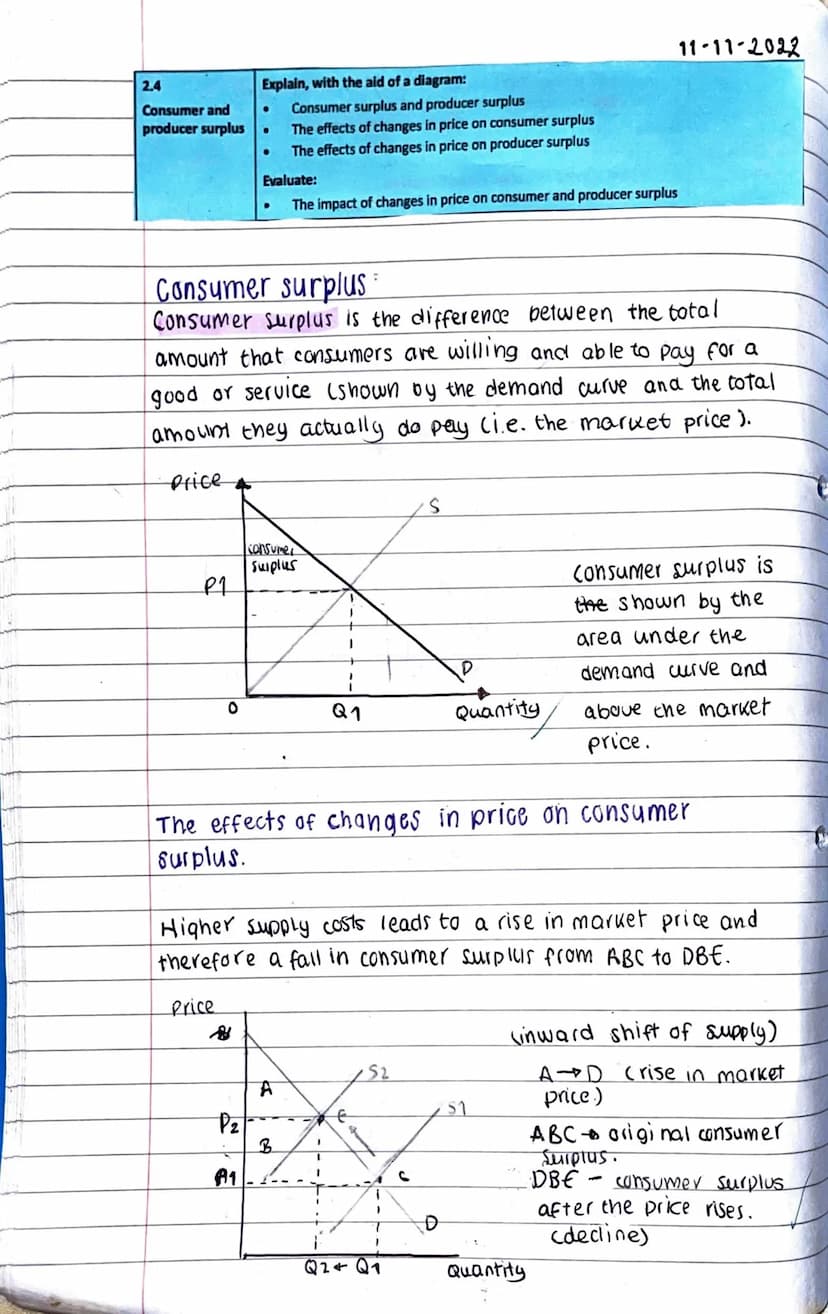 11-11-2022
2.4
Consumer and
producer surplus
Explain, with the aid of a diagram:
• Consumer surplus and producer surplus
• The effects of changes in price on consumer surplus
• The effects of changes in price on producer surplus
Evaluate:
• The impact of changes in price on consumer and producer surplus
Consumer surplus:
Consumer surplus is the difference between the total
amount that consumers are willing and able to pay for a
good or service (shown by the demand curve and the total
amount they actually do pay (i.e. the market price).
Price
S
consumer
surplus
P1
D
0
Q1
Quantity
consumer surplus is
the shown by the
area under the
demand curve and
above the market
price.
The effects of changes in price on consumer
surplus.
Higher supply costs leads to a rise in market price and
therefore a fall in consumer surplus from ABC to DBE.
Price
A
S2
P2
E
S1
B
C
D
Q2 ← Q1
Quantity
(inward shift of supply)
A→D (rise in market
price.)
ABC → original consumer
surplus.
DBE - consumer surplus
after the price rises.
(decline)